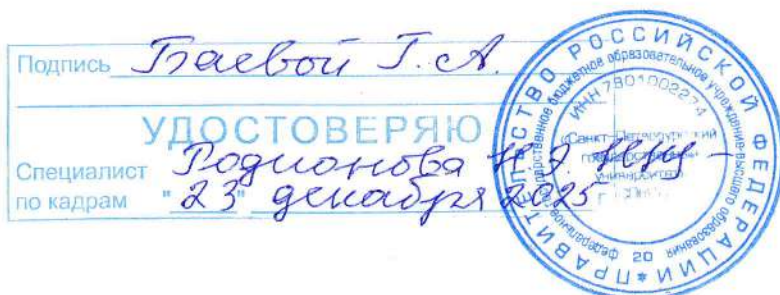 Подпись Баевой Г. А.
УДОСТОВЕРЯЮ
Специалист Родионова Н.Э.
по кадрам "23" декабря 2025
ПРАВИТЕЛЬСТВО РОССИЙСКОЙ ФЕДЕРАЦИИ *
федеральное государственное бюджетное образовательное учреждение высшего образования
ИНН 7801002274
Санкт-Петербургский
государственный
университет
20